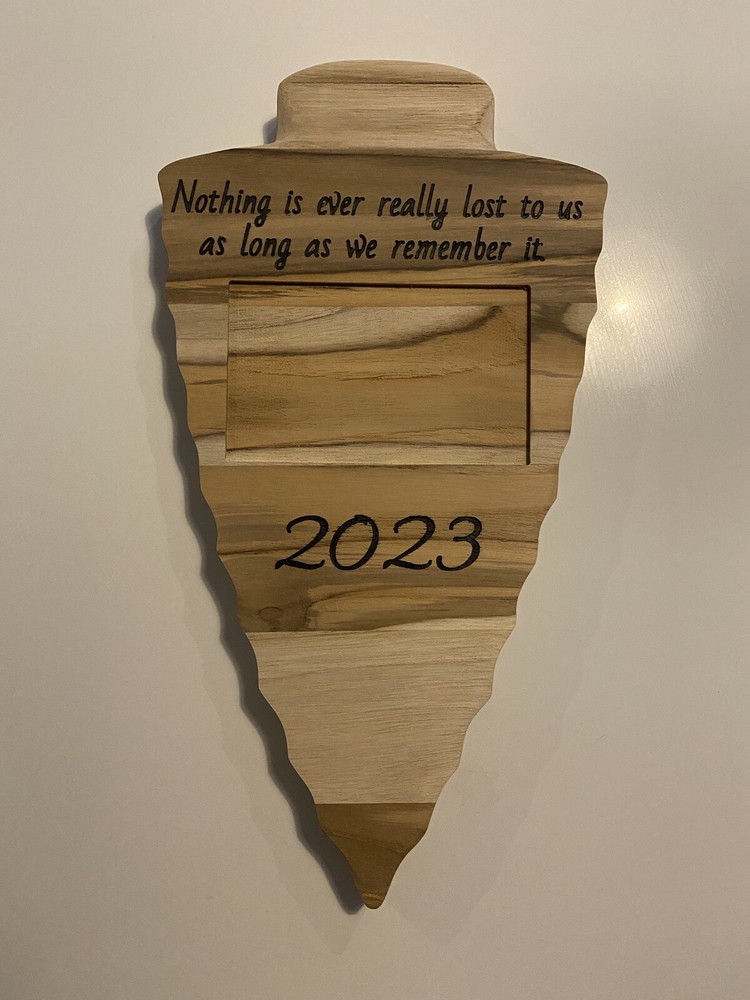 Nothing is ever really lost to us
as long as we remember it.
2023